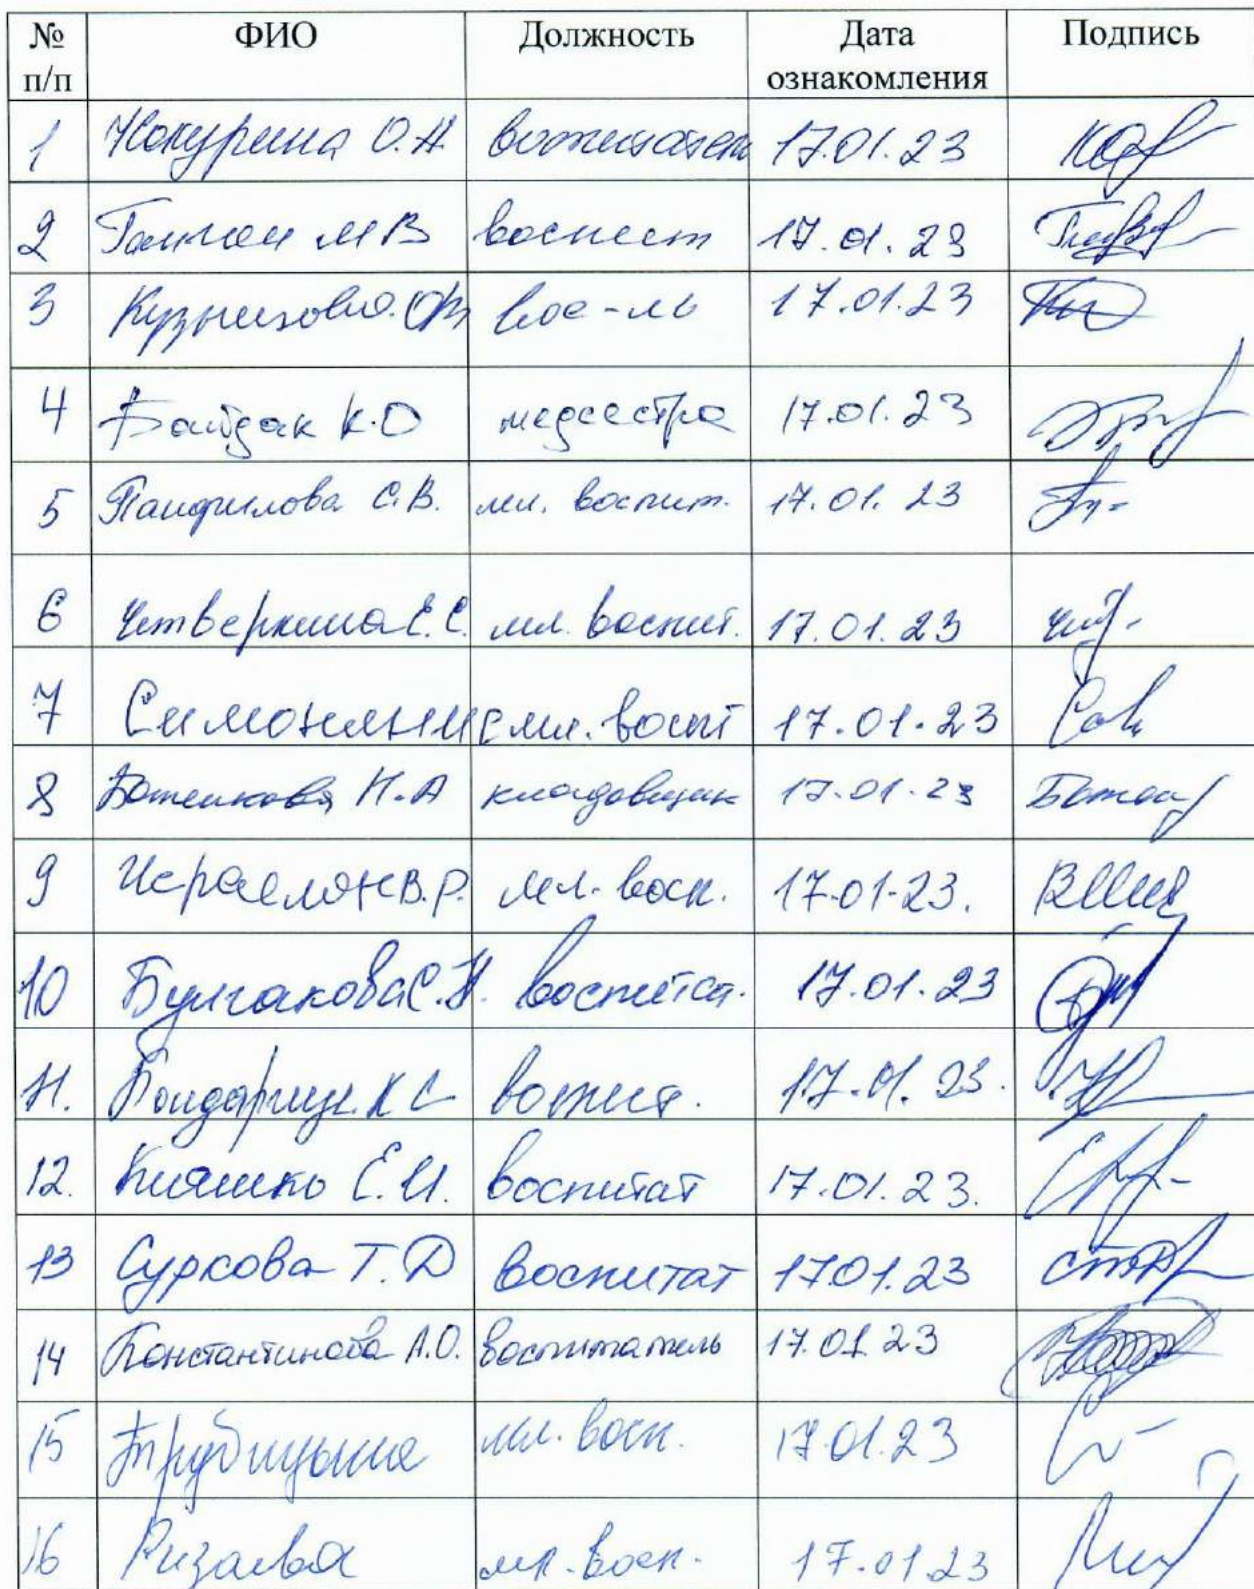 № п/п ФИО Должность Дата ознакомления Подпись
1 О.Н. воспитатель 17.01.23
2 М В воспит 17.01.23
3 вос-ль 17.01.23
4 Байдак К.О медсестра 17.01.23
5 Панфилова С.В. мл. воспит. 17.01.23
6 Четверкина Е.С. мл. воспит. 17.01.23
7 мл. восп 17.01.23
8 Боженкова Н.А кладовщик 17.01.23
9 В.Р. мл. восп. 17.01.23.
10 Булгакова С.Н. воспита. 17.01.23
11. К С воспит. 17.01.23.
12. Кияшко Е.И. воспитат 17.01.23.
13 Суркова Т.Д воспитат 17.01.23
14 Константинова А.О. воспитатель 17.01.23
15 Трубицына мл. восп. 17.01.23
16 Ризаева мл. восп. 17.01.23